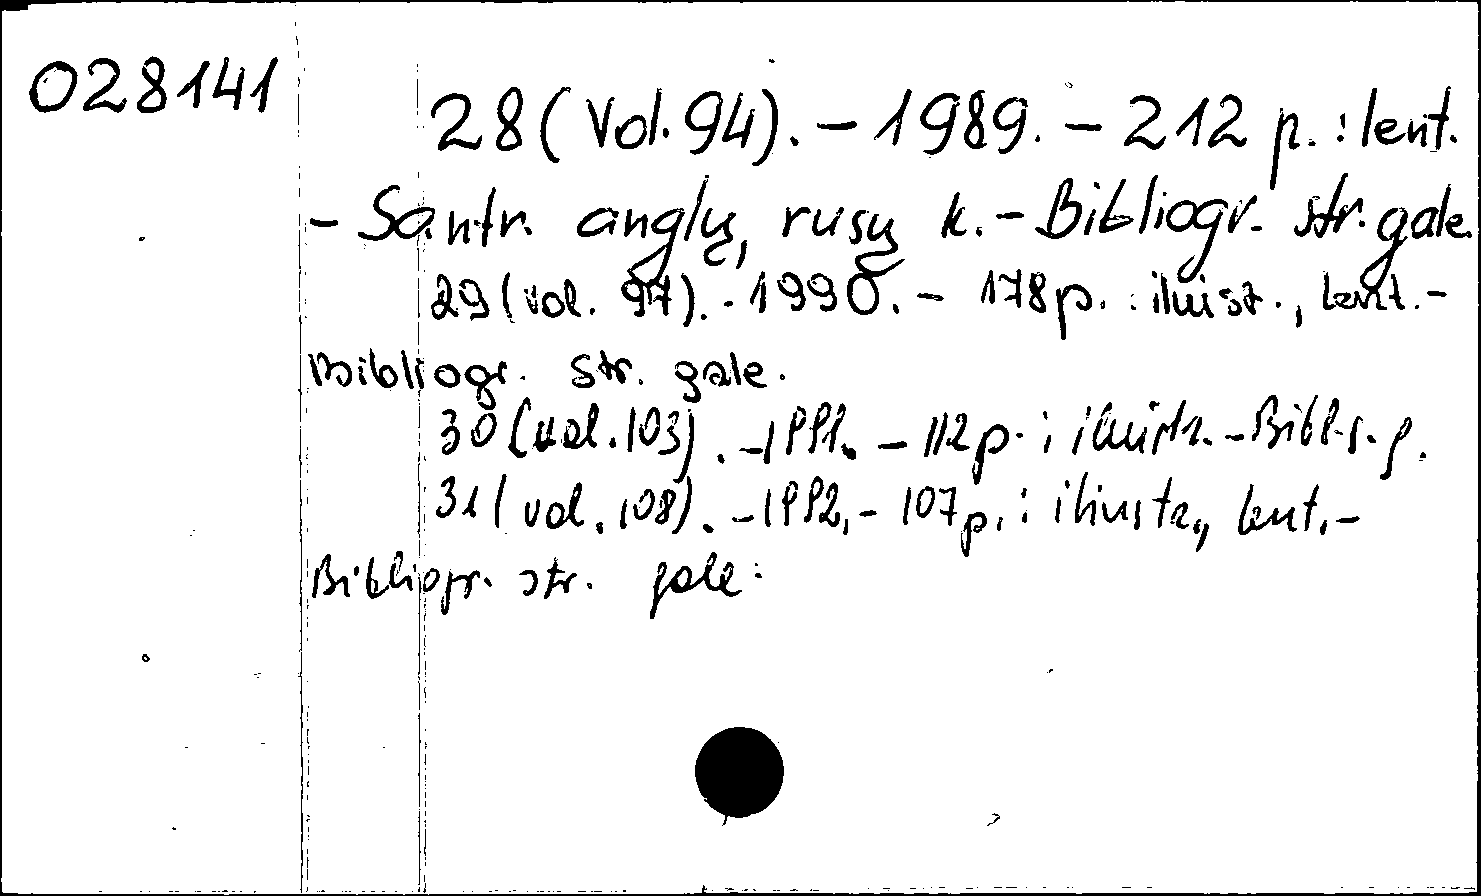 028141
28 (Vol. 94). - 1989. - 212 p. : lent.
- Santr. anglų, rusų k. - Bibliogr. str. gale.
29 (vol. 97). - 1990. - 178 p. : iliust., lent. -
Bibliogr. str. gale.
30 (vol. 103). - 1991. - 112 p. : iliustr. - Bibl. s. g.
31 (vol. 108). - 1992. - 107 p. : iliustr., lent. -
Bibliogr. str. gale.